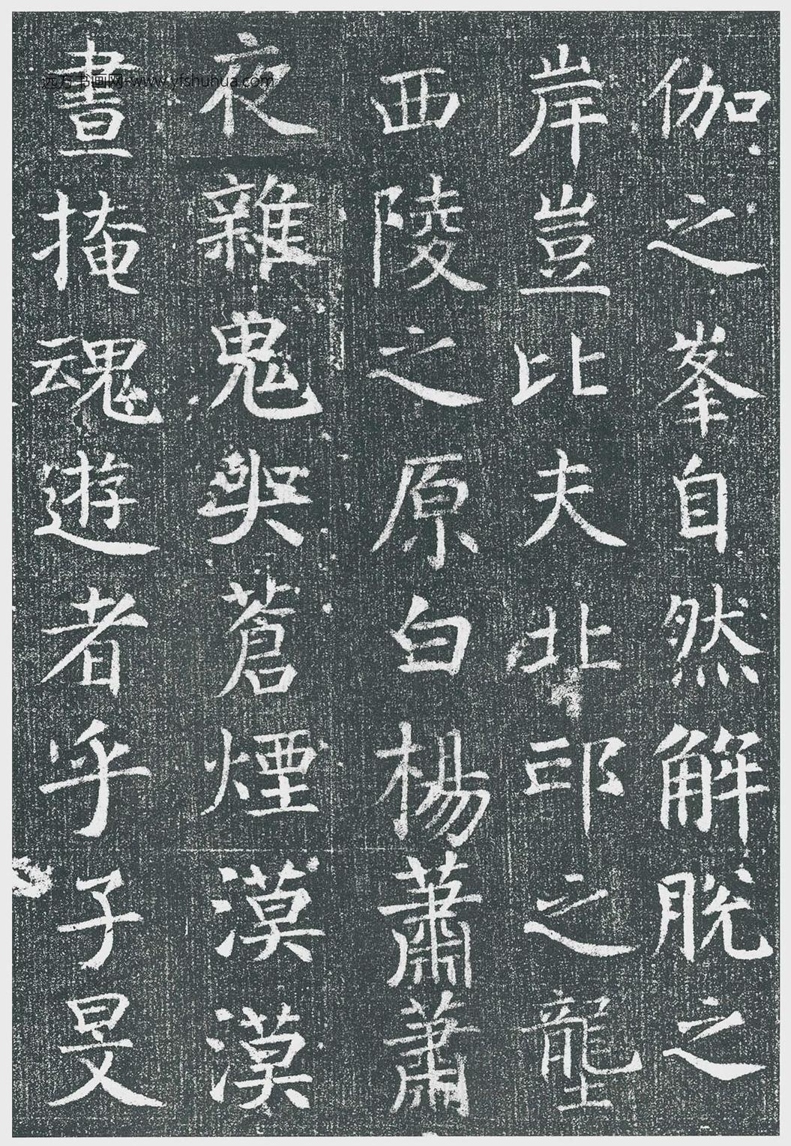 伽之峯自然解脱之
岸豈比夫北邙之壟
西陵之原白楊蕭蕭
夜雜鬼哭蒼煙漠漠
晝掩魂遊者乎子旻
www.yfshuhua.com